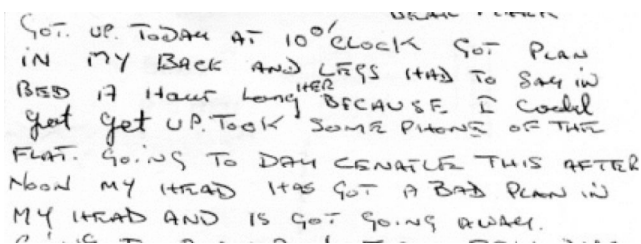 GOT. UP. TODAY AT 10 O'CLOCK GOT PLAN
IN MY BACK AND LEGS HAD TO SAY IN
BED A HOUR LONGHER BECAUSE I COULD
get UP. TOOK SOME PHONE OF THE
FLAT. GOING TO DAY THIS AFTER
NOON MY HEAD HAS GOT A BAD PLAN IN
MY HEAD AND IS GOT GOING AWAY.